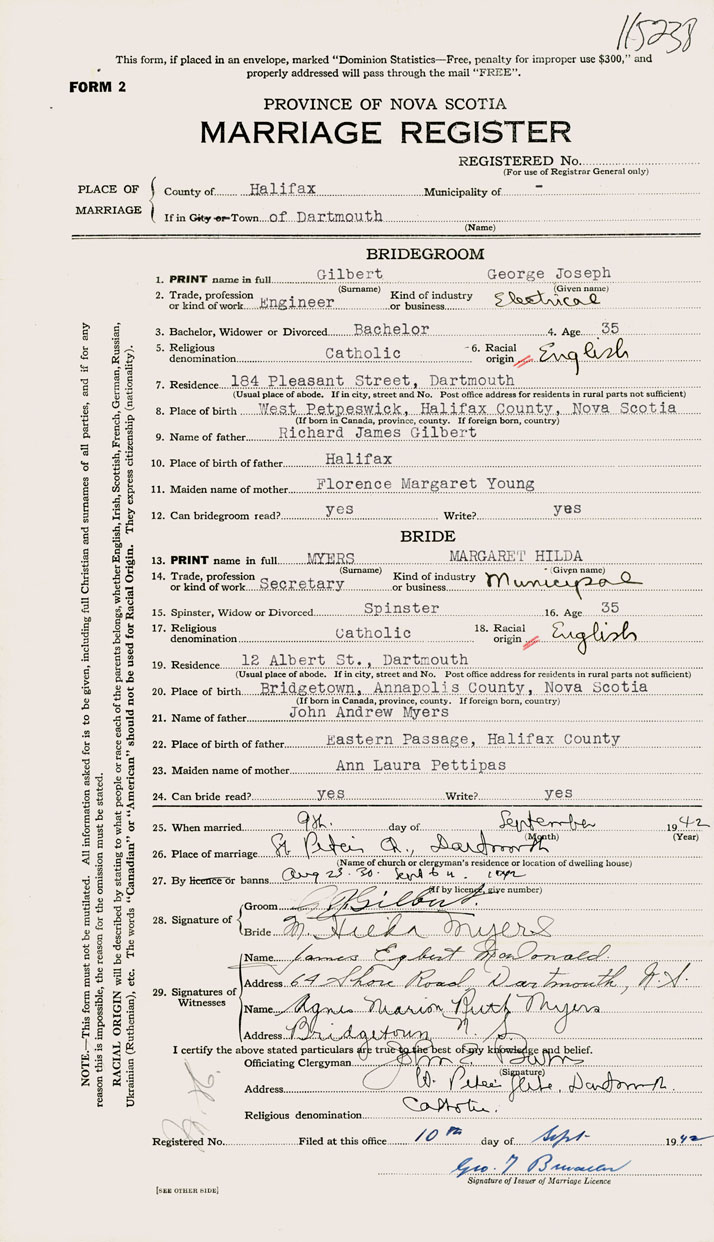 115238
This form, if placed in an envelope, marked "Dominion Statistics—Free, penalty for improper use $300," and
properly addressed will pass through the mail "FREE".
FORM 2
PROVINCE OF NOVA SCOTIA
MARRIAGE REGISTER
REGISTERED No.
(For use of Registrar General only)
PLACE OF MARRIAGE
County of Halifax Municipality of -
If in City or Town of Dartmouth
(Name)
BRIDEGROOM
1. PRINT name in full Gilbert George Joseph
(Surname) (Given name)
2. Trade, profession or kind of work Engineer Kind of industry or business Electrical
3. Bachelor, Widower or Divorced Bachelor 4. Age 35
5. Religious denomination Catholic 6. Racial origin English
7. Residence 184 Pleasant Street, Dartmouth
(Usual place of abode. If in city, street and No. Post office address for residents in rural parts not sufficient)
8. Place of birth West Petpeswick, Halifax County, Nova Scotia
(If born in Canada, province, county. If foreign born, country)
9. Name of father Richard James Gilbert
10. Place of birth of father Halifax
11. Maiden name of mother Florence Margaret Young
12. Can bridegroom read? yes Write? yes
BRIDE
13. PRINT name in full MYERS MARGARET HILDA
(Surname) (Given name)
14. Trade, profession or kind of work Secretary Kind of industry or business Municipal
15. Spinster, Widow or Divorced Spinster 16. Age 35
17. Religious denomination Catholic 18. Racial origin English
19. Residence 12 Albert St., Dartmouth
(Usual place of abode. If in city, street and No. Post office address for residents in rural parts not sufficient)
20. Place of birth Bridgetown, Annapolis County, Nova Scotia
(If born in Canada, province, county. If foreign born, country)
21. Name of father John Andrew Myers
22. Place of birth of father Eastern Passage, Halifax County
23. Maiden name of mother Ann Laura Pettipas
24. Can bride read? yes Write? yes
25. When married 9th day of September 1942
(Month) (Year)
26. Place of marriage St Peter's Dartmouth
(Name of church or clergyman's residence or location of dwelling house)
27. By licence or banns Aug 23. 30. Sept 6 1942
(If by licence, give number)
28. Signature of
Groom Gilbert.
Bride M. Hilda Myers
29. Signatures of Witnesses
Name James Egbert MacDonald
Address 64 Shore Road Dartmouth, N.S.
Name Agnes Marion Ruth Myers
Address Bridgetown N. S.
I certify the above stated particulars are true to the best of my knowledge and belief.
Officiating Clergyman John E
(Signature)
Address St. Peter's Dartmouth.
Religious denomination Catholic.
Registered No. Filed at this office 10th day of Sept 1942
Geo. T
Signature of Issuer of Marriage Licence
[SEE OTHER SIDE]
NOTE.—This form must not be mutilated. All information asked for is to be given, including full Christian and surnames of all parties, and if for any
reason this is impossible, the reason for the omission must be stated.
RACIAL ORIGIN will be described by stating to what people or race each of the parents belongs, whether English, Irish, Scottish, French, German, Russian,
Ukrainian (Ruthenian), etc. The words "Canadian" or "American" should not be used for Racial Origin. They express citizenship (nationality).